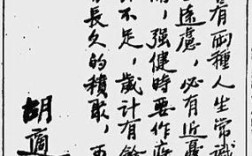 有兩種人生常識
遠慮，必有近憂
，強健時要作疾
不足，歲計有餘
長久的積聚，
胡適